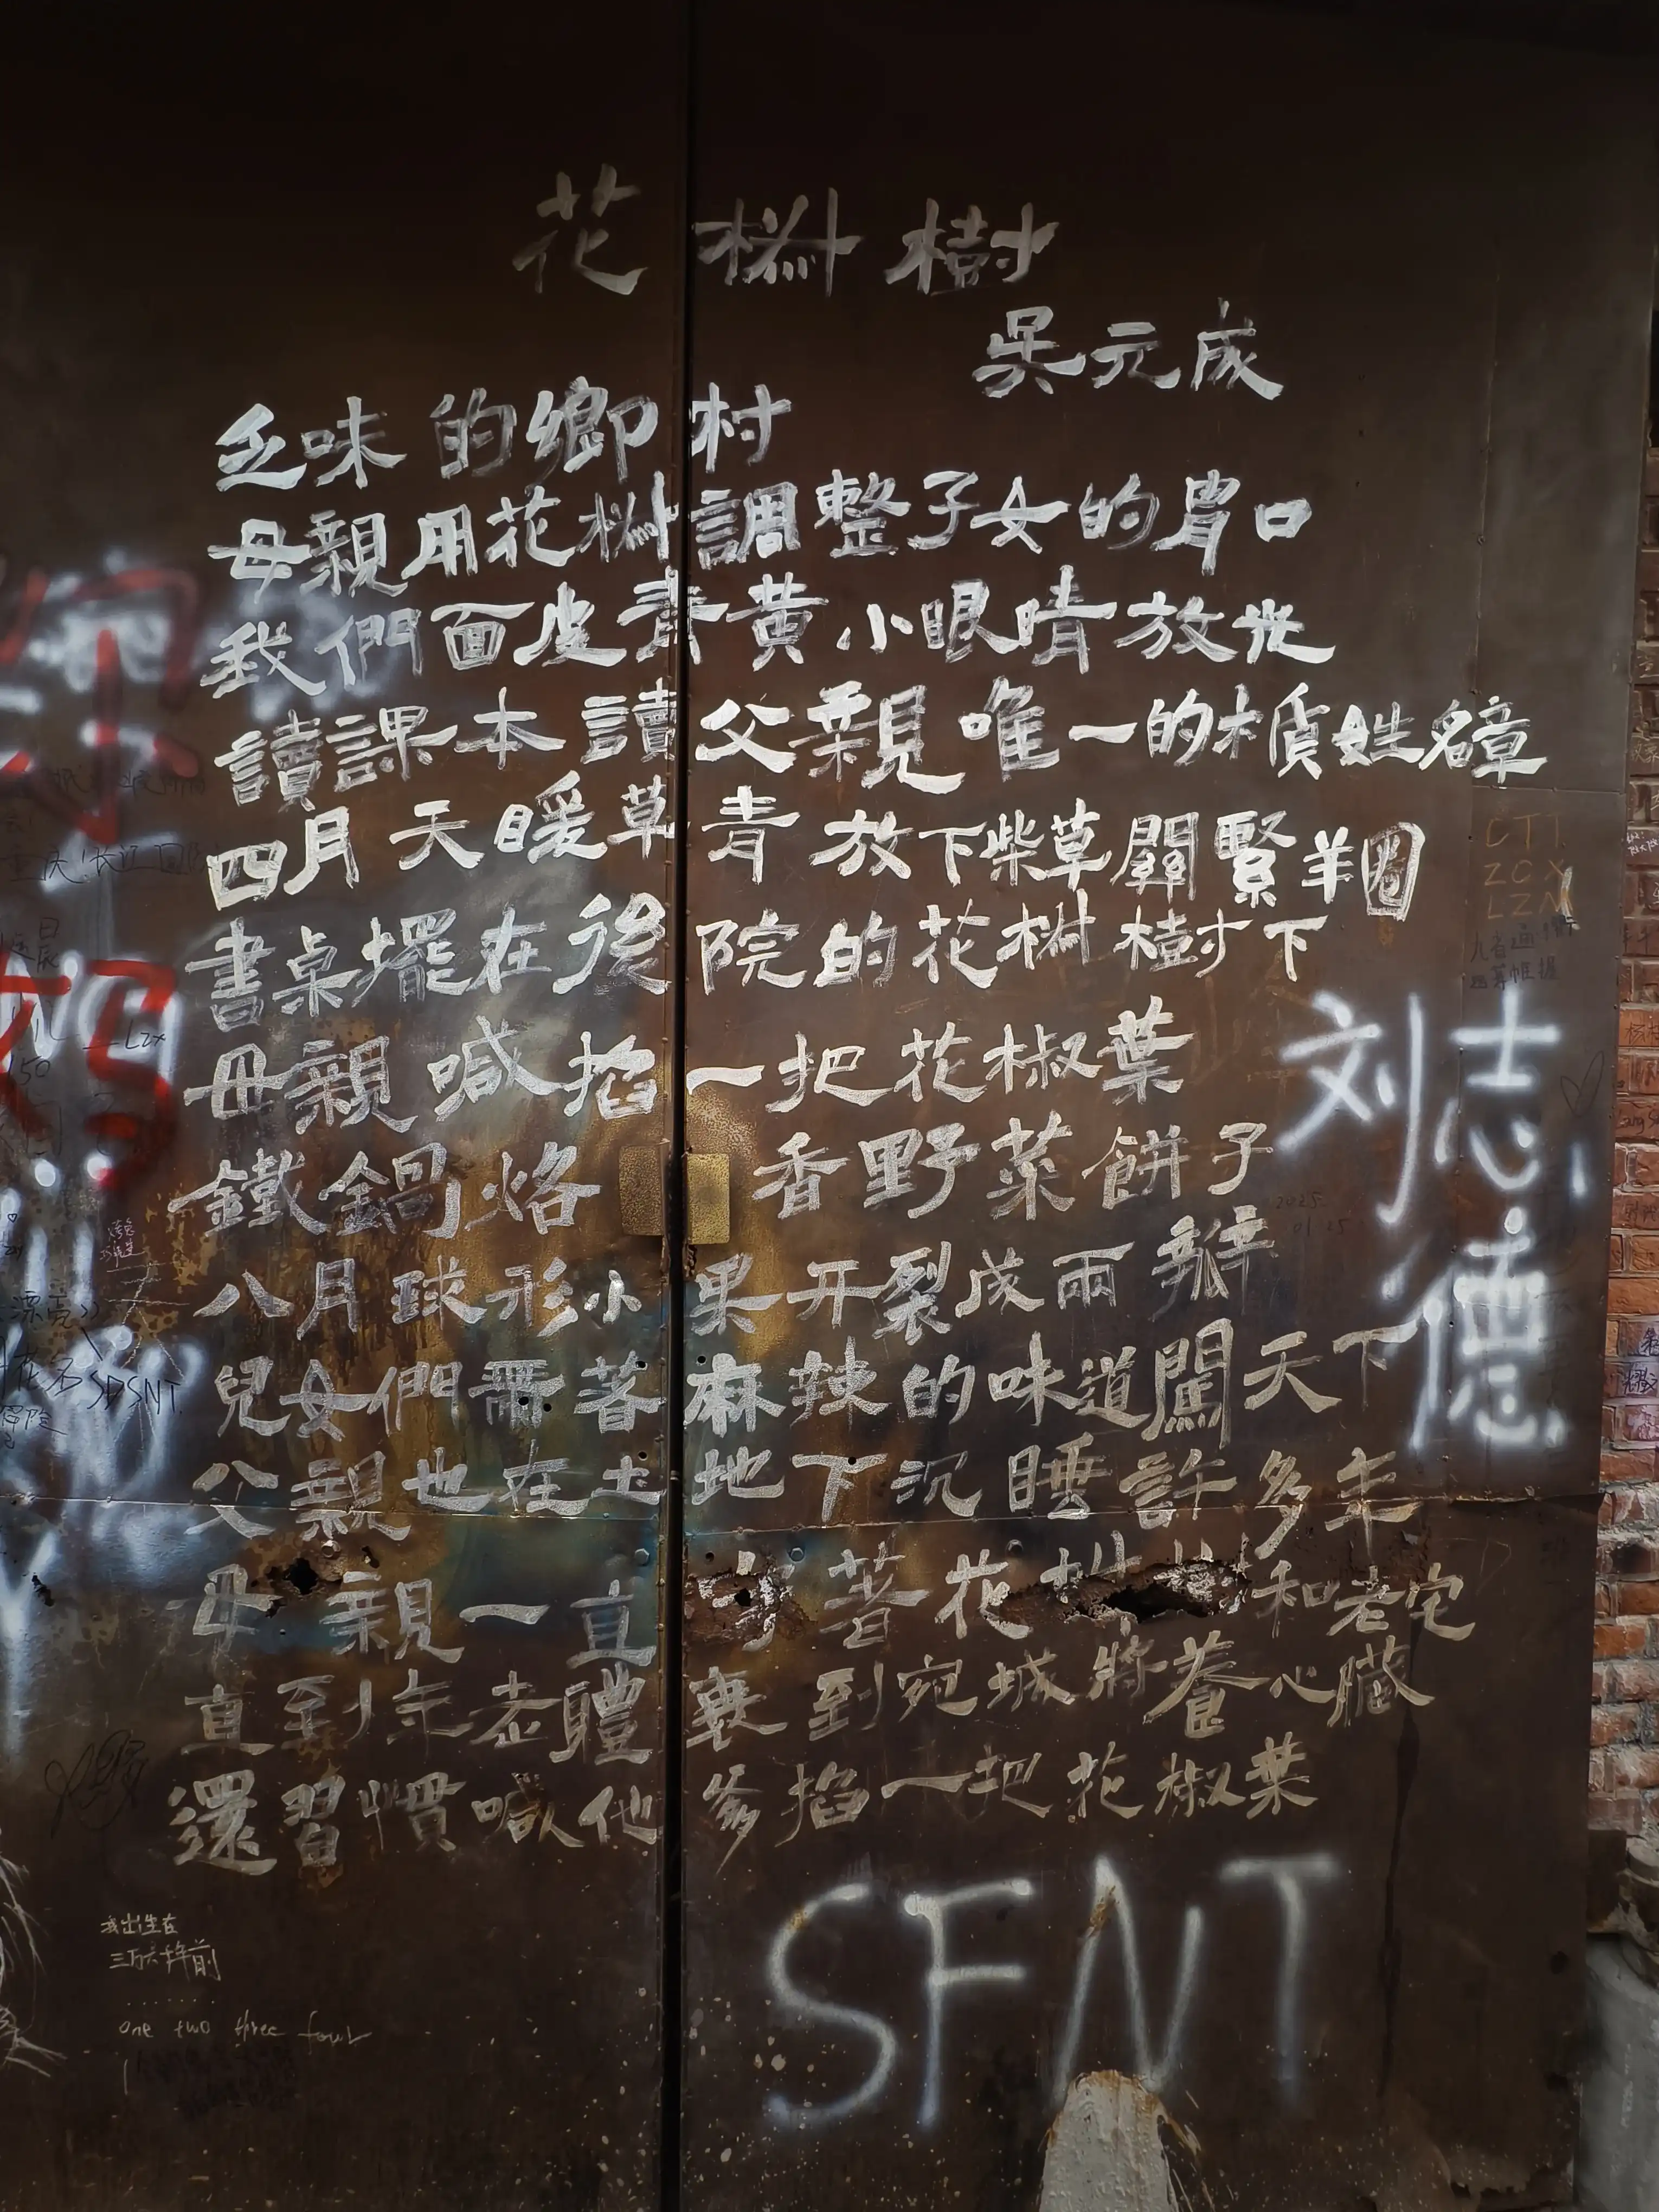 花椒樹
吳元成
乏味的鄉村
母親用花椒調整子女的胃口
我們面皮青黃小眼睛放光
讀課本讀父親唯一的木質姓名章
四月天暖草青放下柴草關緊羊圈
書桌擺在後院的花椒樹下
母親喊掐一把花椒葉
鐵鍋烙香野菜餅子
八月球形小果开裂成兩瓣
兒女們帶著麻辣的味道闖天下
父親也在土地下沉睡許多年
母親一直守著花椒和老宅
直至年老體衰到宛城將養心臟
還習慣喊他爹掐一把花椒葉
刘志德
SFNT
CTI
ZCX
LZN
SDSNT
2025
01-25
我出生在
one two three four